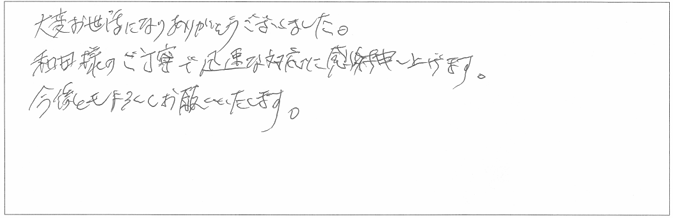 大変お世話になりありがとうございました。
和田様のご丁寧で迅速な対応に感謝申し上げます。
今後ともよろしくお願いいたします。